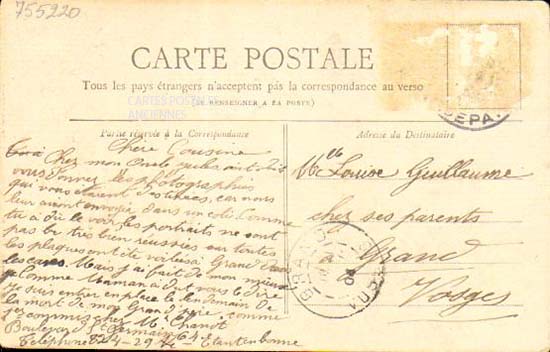 755220
CARTE POSTALE
Tous les pays étrangers n'acceptent pas la correspondance au verso
(SE RENSEIGNER A LA POSTE)
CARTES POSTALES
ANCIENNES
Partie réservée à la Correspondance
Chère Cousine
Chez mon Oncle
vous donner les photographies
qui vous étaient car nous
leur avons envoyé dans un colis. Comme
tu a dû le voir, les portraits ne sont
pas très bien réussies car toutes
les plaques ont été voilées à Grand dans
les caves. Mais j'ai fait de mon mieux
Comme Maman a dut vous le dire
je suis entré en place le lendemain de
la mort de mon Grand père, comme
commis chez M. Chanot
Boulevard St Germain 64
Téléphone 824-29
Adresse du Destinataire
Mlle Louise Guillaume
chez ses parents
à Grand
Vosges
DEPA
GRAND